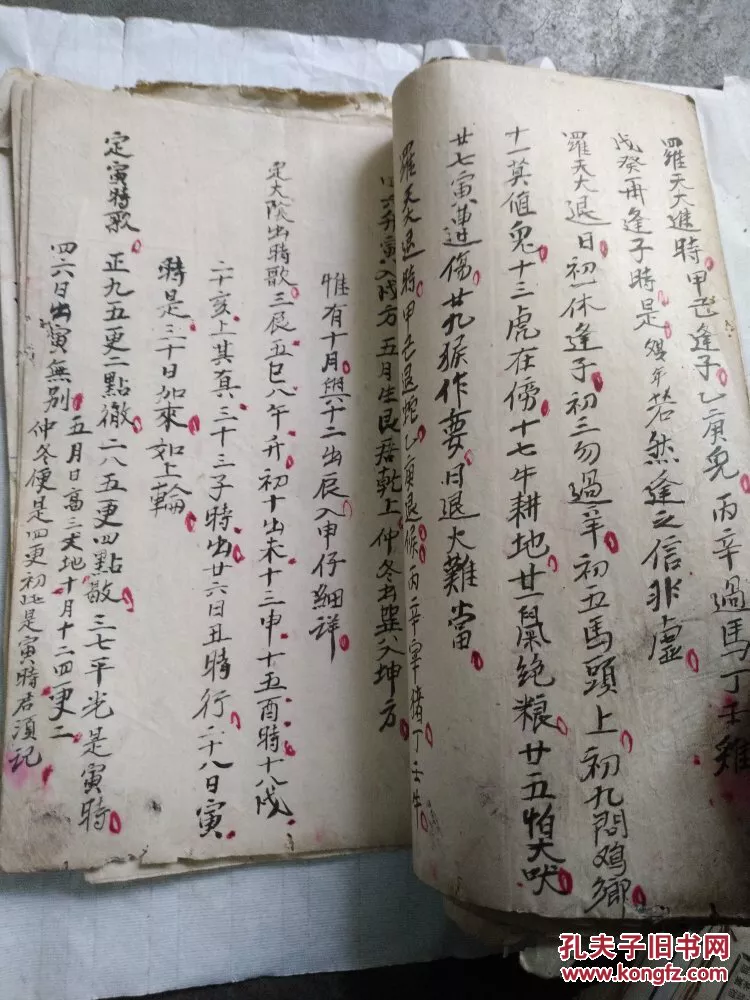 羅天大進時甲己逢子乙庚兔丙辛過馬丁壬雞
戊癸再逢子時是 若然逢之信非虛
羅天大退日初一休逢子初三勿過羊初五馬頭上初九問鸡鄉
十一莫值兔十三虎在傍十七牛耕地廿一鼠绝粮廿五怕犬吠
廿七寅畨遭傷廿九猴作耍日退大難當
羅天大退時甲己退蛇乙庚退候丙辛宰猪丁壬牛
寅入戌方五月生艮居乾上仲冬出巽入坤方
惟有十月與十二出辰入申仔細詳
定太陰出時歌三辰五巳八午升初十出未十三申十五酉時十八戌
二十亥上其真二十三子時出廿六日丑時行二十八日寅
時是三十日加來如上輪
定寅時歌 正九五更二點徹二八五更四點歇三七平光是寅時
四六日出寅無別五月日高三丈地十月十二四更二
仲冬便是四更初此是寅時君須记
孔夫子旧书网
www.kongfz.com